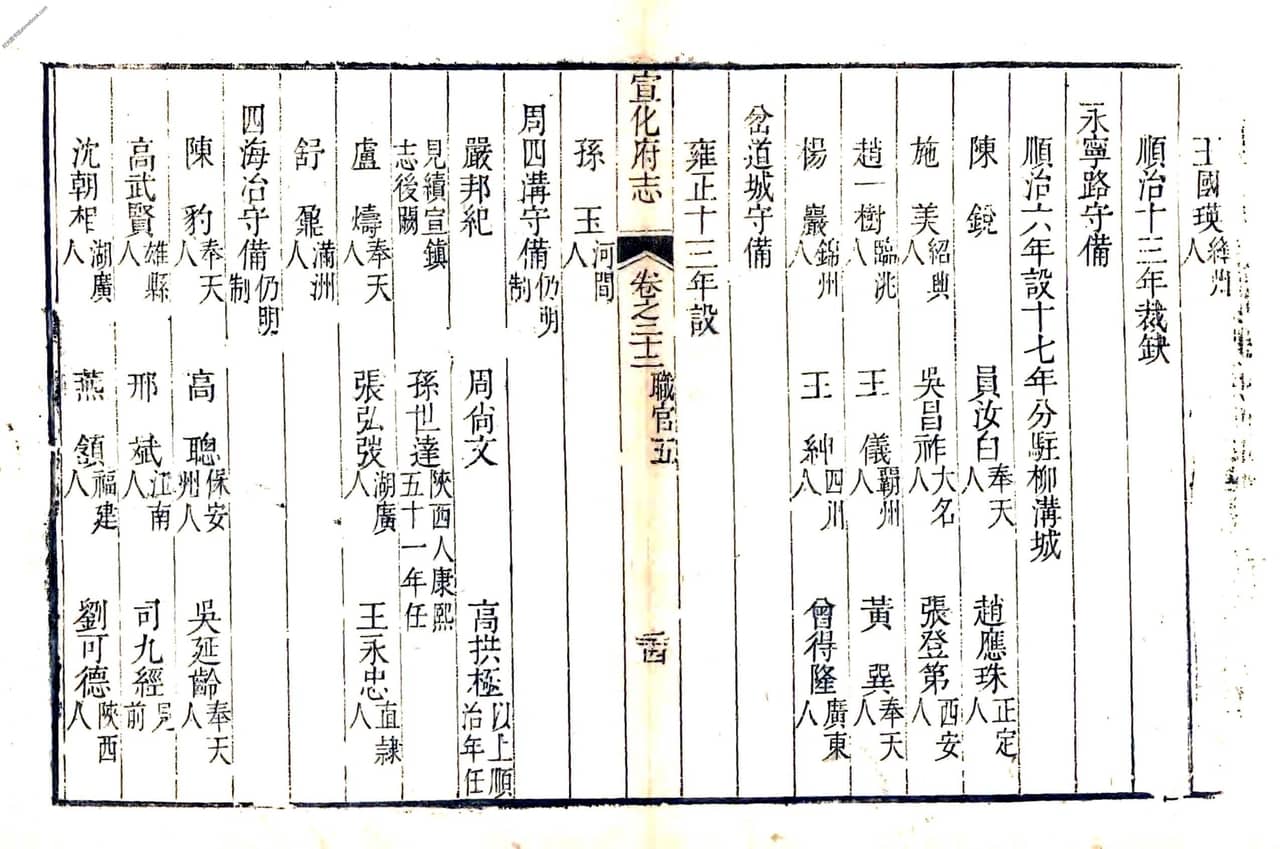 王國瑛絳州人
順治十三年裁缺
永寧路守備
順治六年設十七年分駐柳溝城
陳 銳 員汝白奉天人 趙應珠正定人
施 美紹興人 吳昌祚大名人 張登第西安人
趙一樹臨洮人 王 儀霸州人 黃 巽奉天人
楊 巖錦州人 王 紳四川人 曾得隆廣東人
岔道城守備
雍正十三年設
宣化府志 卷之二十二 職官五 二十四
孫 玉河間人
周四溝守備仍明制
嚴邦紀 周尙文 高拱極以上順治年任
見續宣鎮志後闕 孫世達陝西人康熙五十一年任
盧 燽奉天人 張弘弢湖廣人 王永忠直隸人
舒 鼐滿洲人
四海冶守備仍明制
陳 豹奉天人 高 聰保安州人 吳延齡奉天人
高武賢雄縣人 邢 斌江南人 司九經見前
沈朝相湖廣人 燕 領福建人 劉可德陝西人